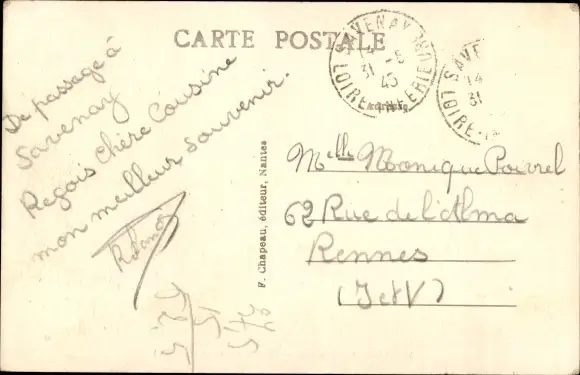 CARTE POSTALE
De passage à
Savenay
Reçois chère Cousine
mon meilleur souvenir.
F. Chapeau, éditeur, Nantes
SAVENAY
31
45
LOIRE-INFERIEURE
SAVE
14
31
LOIRE-I
Melle Monique Poirel
62 Rue de l'Alma
Rennes
(I et V)